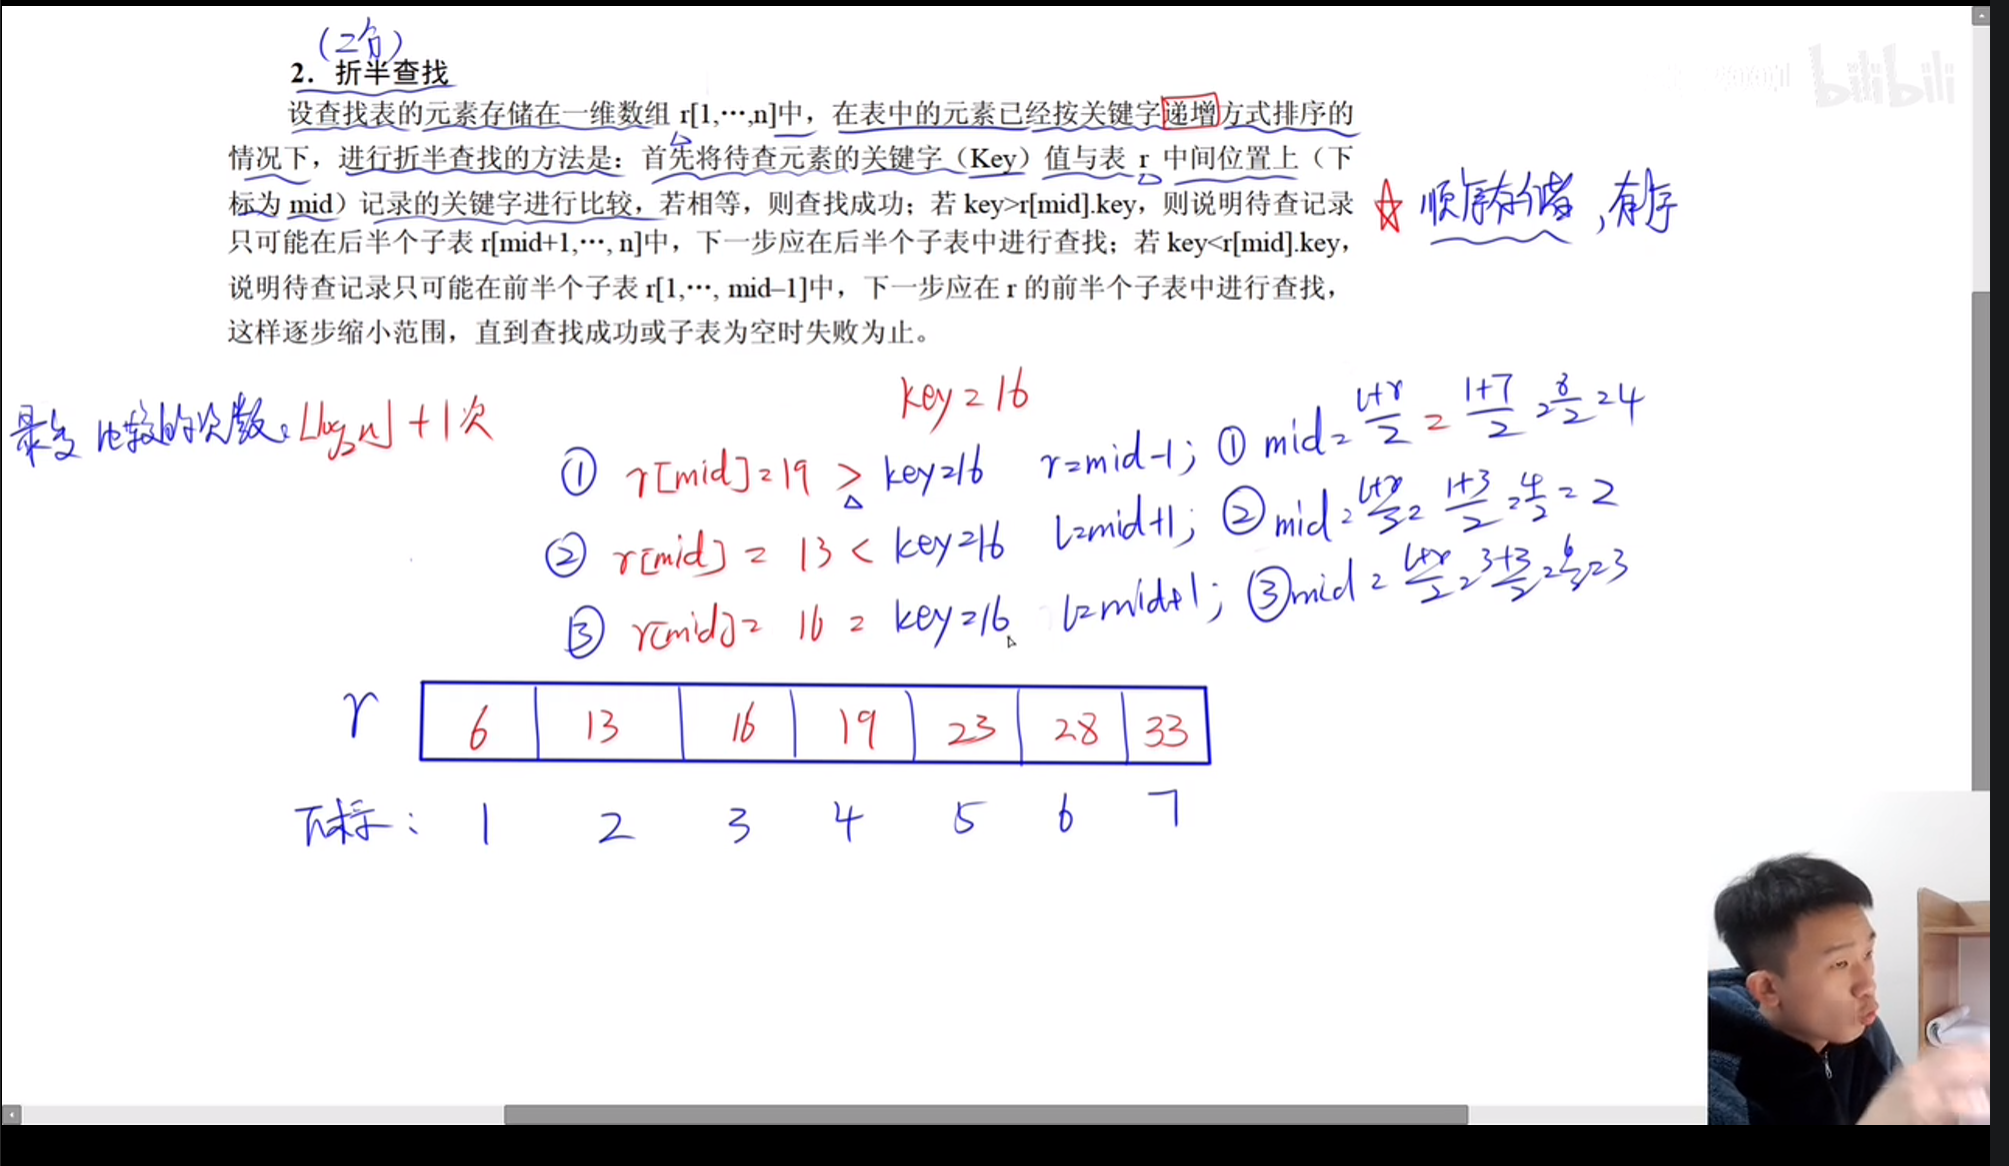 (2分)
2. 折半查找
bilibili
设查找表的元素存储在一维数组 r[1,…,n]中，在表中的元素已经按关键字递增方式排序的
情况下，进行折半查找的方法是：首先将待查元素的关键字（Key）值与表 r 中间位置上（下
标为 mid）记录的关键字进行比较，若相等，则查找成功；若 key>r[mid].key，则说明待查记录
只可能在后半个子表 r[mid+1,…, n]中，下一步应在后半个子表中进行查找；若 key<r[mid].key，
说明待查记录只可能在前半个子表 r[1,…, mid–1]中，下一步应在 r 的前半个子表中进行查找，
这样逐步缩小范围，直到查找成功或子表为空时失败为止。
☆ 顺序存储，有序
最多比较的次数：⌊log₂n⌋+1次
key=16
① r[mid]=19 > key=16 r=mid-1; ① mid=(l+r)/2=(1+7)/2=8/2=4
② r[mid]=13 < key=16 l=mid+1; ② mid=(l+r)/2=(1+3)/2=4/2=2
③ r[mid]=16 = key=16 l=mid+1; ③ mid=(l+r)/2=(3+3)/2=6/2=3
r 6 13 16 19 23 28 33
下标： 1 2 3 4 5 6 7